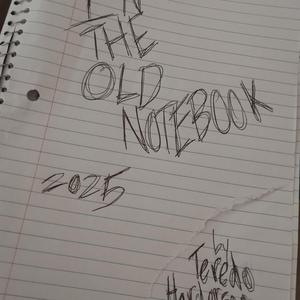 THE
OLD
NOTEBOOK
2025
by
Teredo